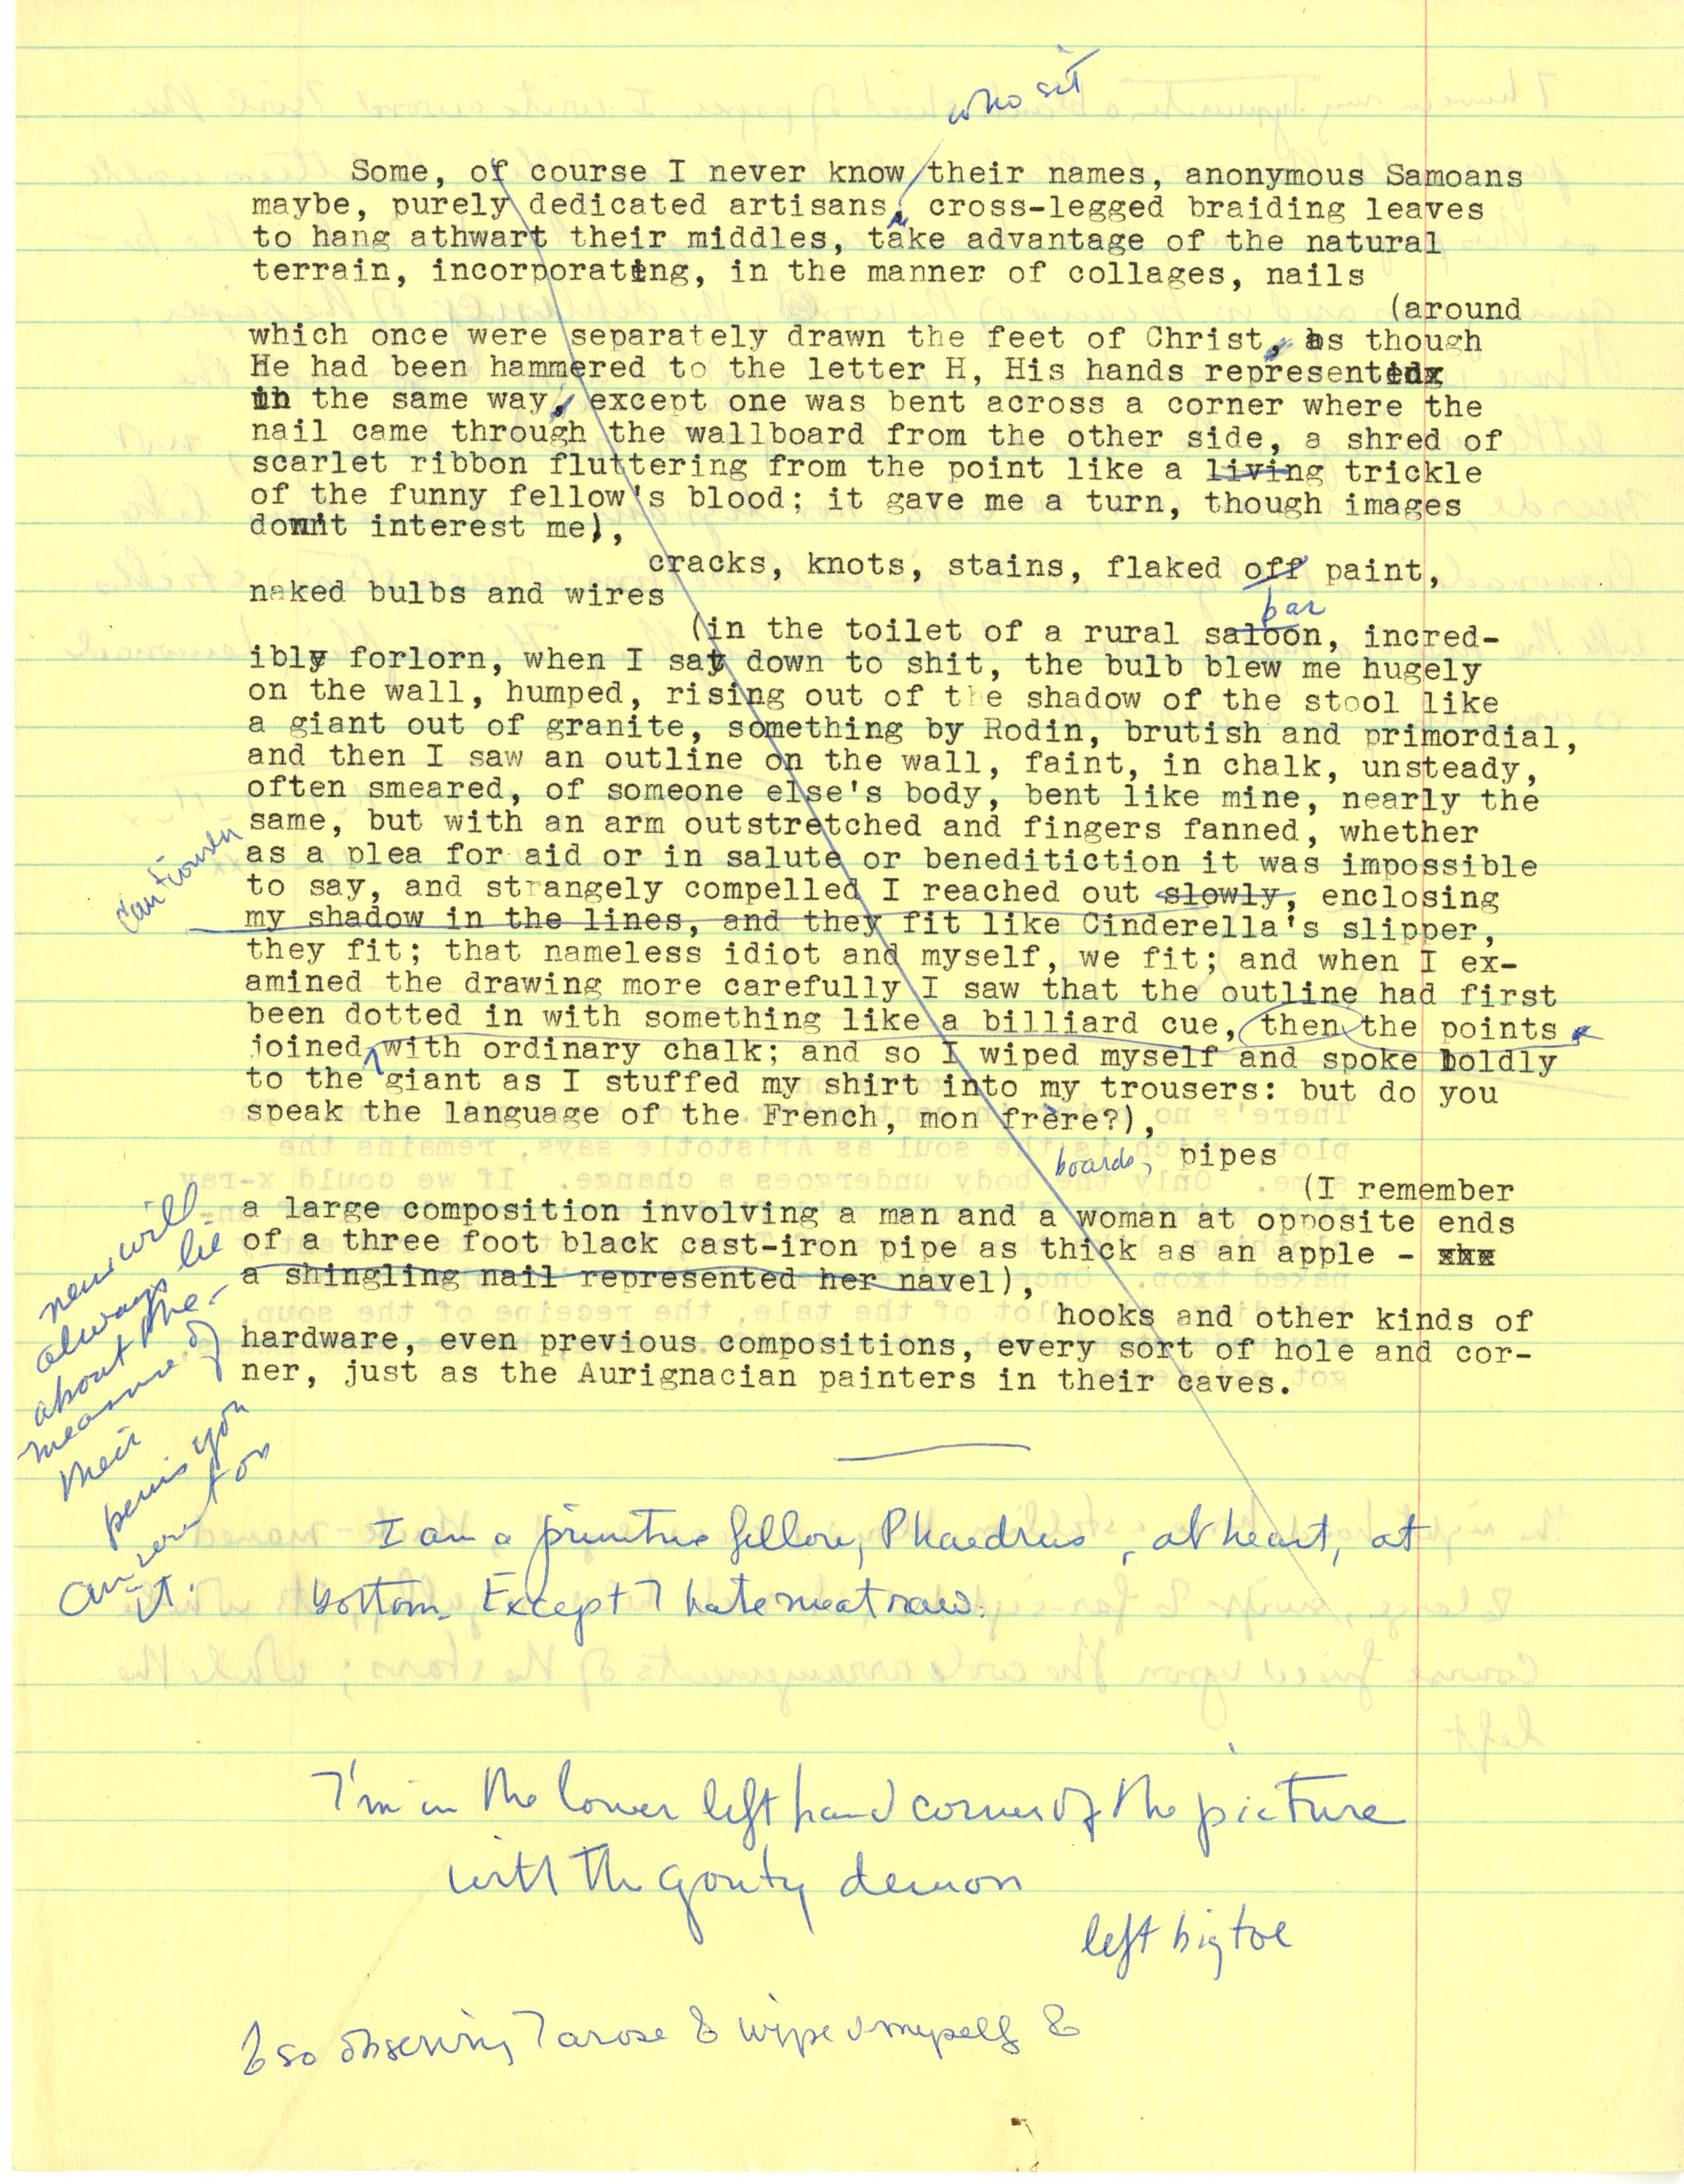 who sit
Some, of course I never know their names, anonymous Samoans
maybe, purely dedicated artisans, cross-legged braiding leaves
to hang athwart their middles, take advantage of the natural
terrain, incorporating, in the manner of collages, nails
(around
which once were separately drawn the feet of Christ, as though
He had been hammered to the letter H, His hands represented
in the same way, except one was bent across a corner where the
nail came through the wallboard from the other side, a shred of
scarlet ribbon fluttering from the point like a living trickle
of the funny fellow's blood; it gave me a turn, though images
don't interest me),
cracks, knots, stains, flaked off paint,
naked bulbs and wires
bar
(in the toilet of a rural saloon, incred-
ibly forlorn, when I sat down to shit, the bulb blew me hugely
on the wall, humped, rising out of the shadow of the stool like
a giant out of granite, something by Rodin, brutish and primordial,
and then I saw an outline on the wall, faint, in chalk, unsteady,
often smeared, of someone else's body, bent like mine, nearly the
same, but with an arm outstretched and fingers fanned, whether
as a plea for aid or in salute or beneditiction it was impossible
cautiously
to say, and strangely compelled I reached out slowly, enclosing
my shadow in the lines, and they fit like Cinderella's slipper,
they fit; that nameless idiot and myself, we fit; and when I ex-
amined the drawing more carefully I saw that the outline had first
been dotted in with something like a billiard cue, then the points
joined with ordinary chalk; and so I wiped myself and spoke boldly
to the giant as I stuffed my shirt into my trousers: but do you
speak the language of the French, mon frère?),
boards, pipes
(I remember
a large composition involving a man and a woman at opposite ends
of a three foot black cast-iron pipe as thick as an apple - xxx
a shingling nail represented her navel),
hooks and other kinds of
hardware, even previous compositions, every sort of hole and cor-
ner, just as the Aurignacian painters in their caves.
men will
always lie
about the
measure of
their
penis you
can count on
it.
I am a primitive fellow, Phaedrus, at heart, at
bottom. Except I hate meat raw.
I'm in the lower left hand corner of the picture
with the gouty demon
left big toe
& so observing I arose & wiped myself &